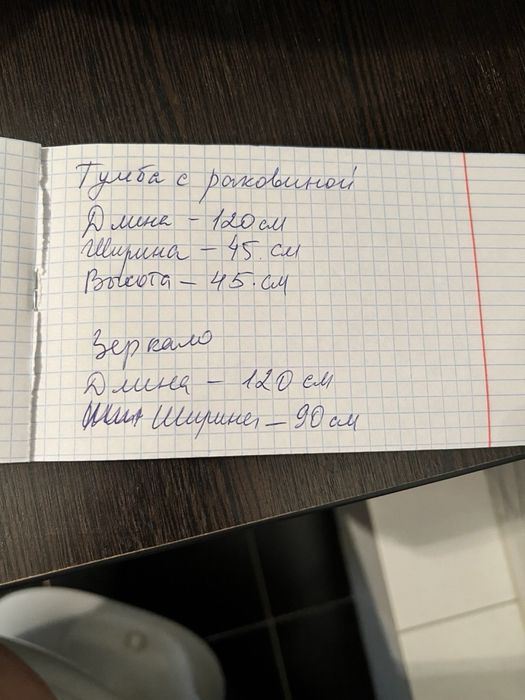 Тумба с раковиной
Длина - 120 см
Ширина - 45 см
Высота - 45 см
Зеркало
Длина - 120 см
Ширина - 90 см